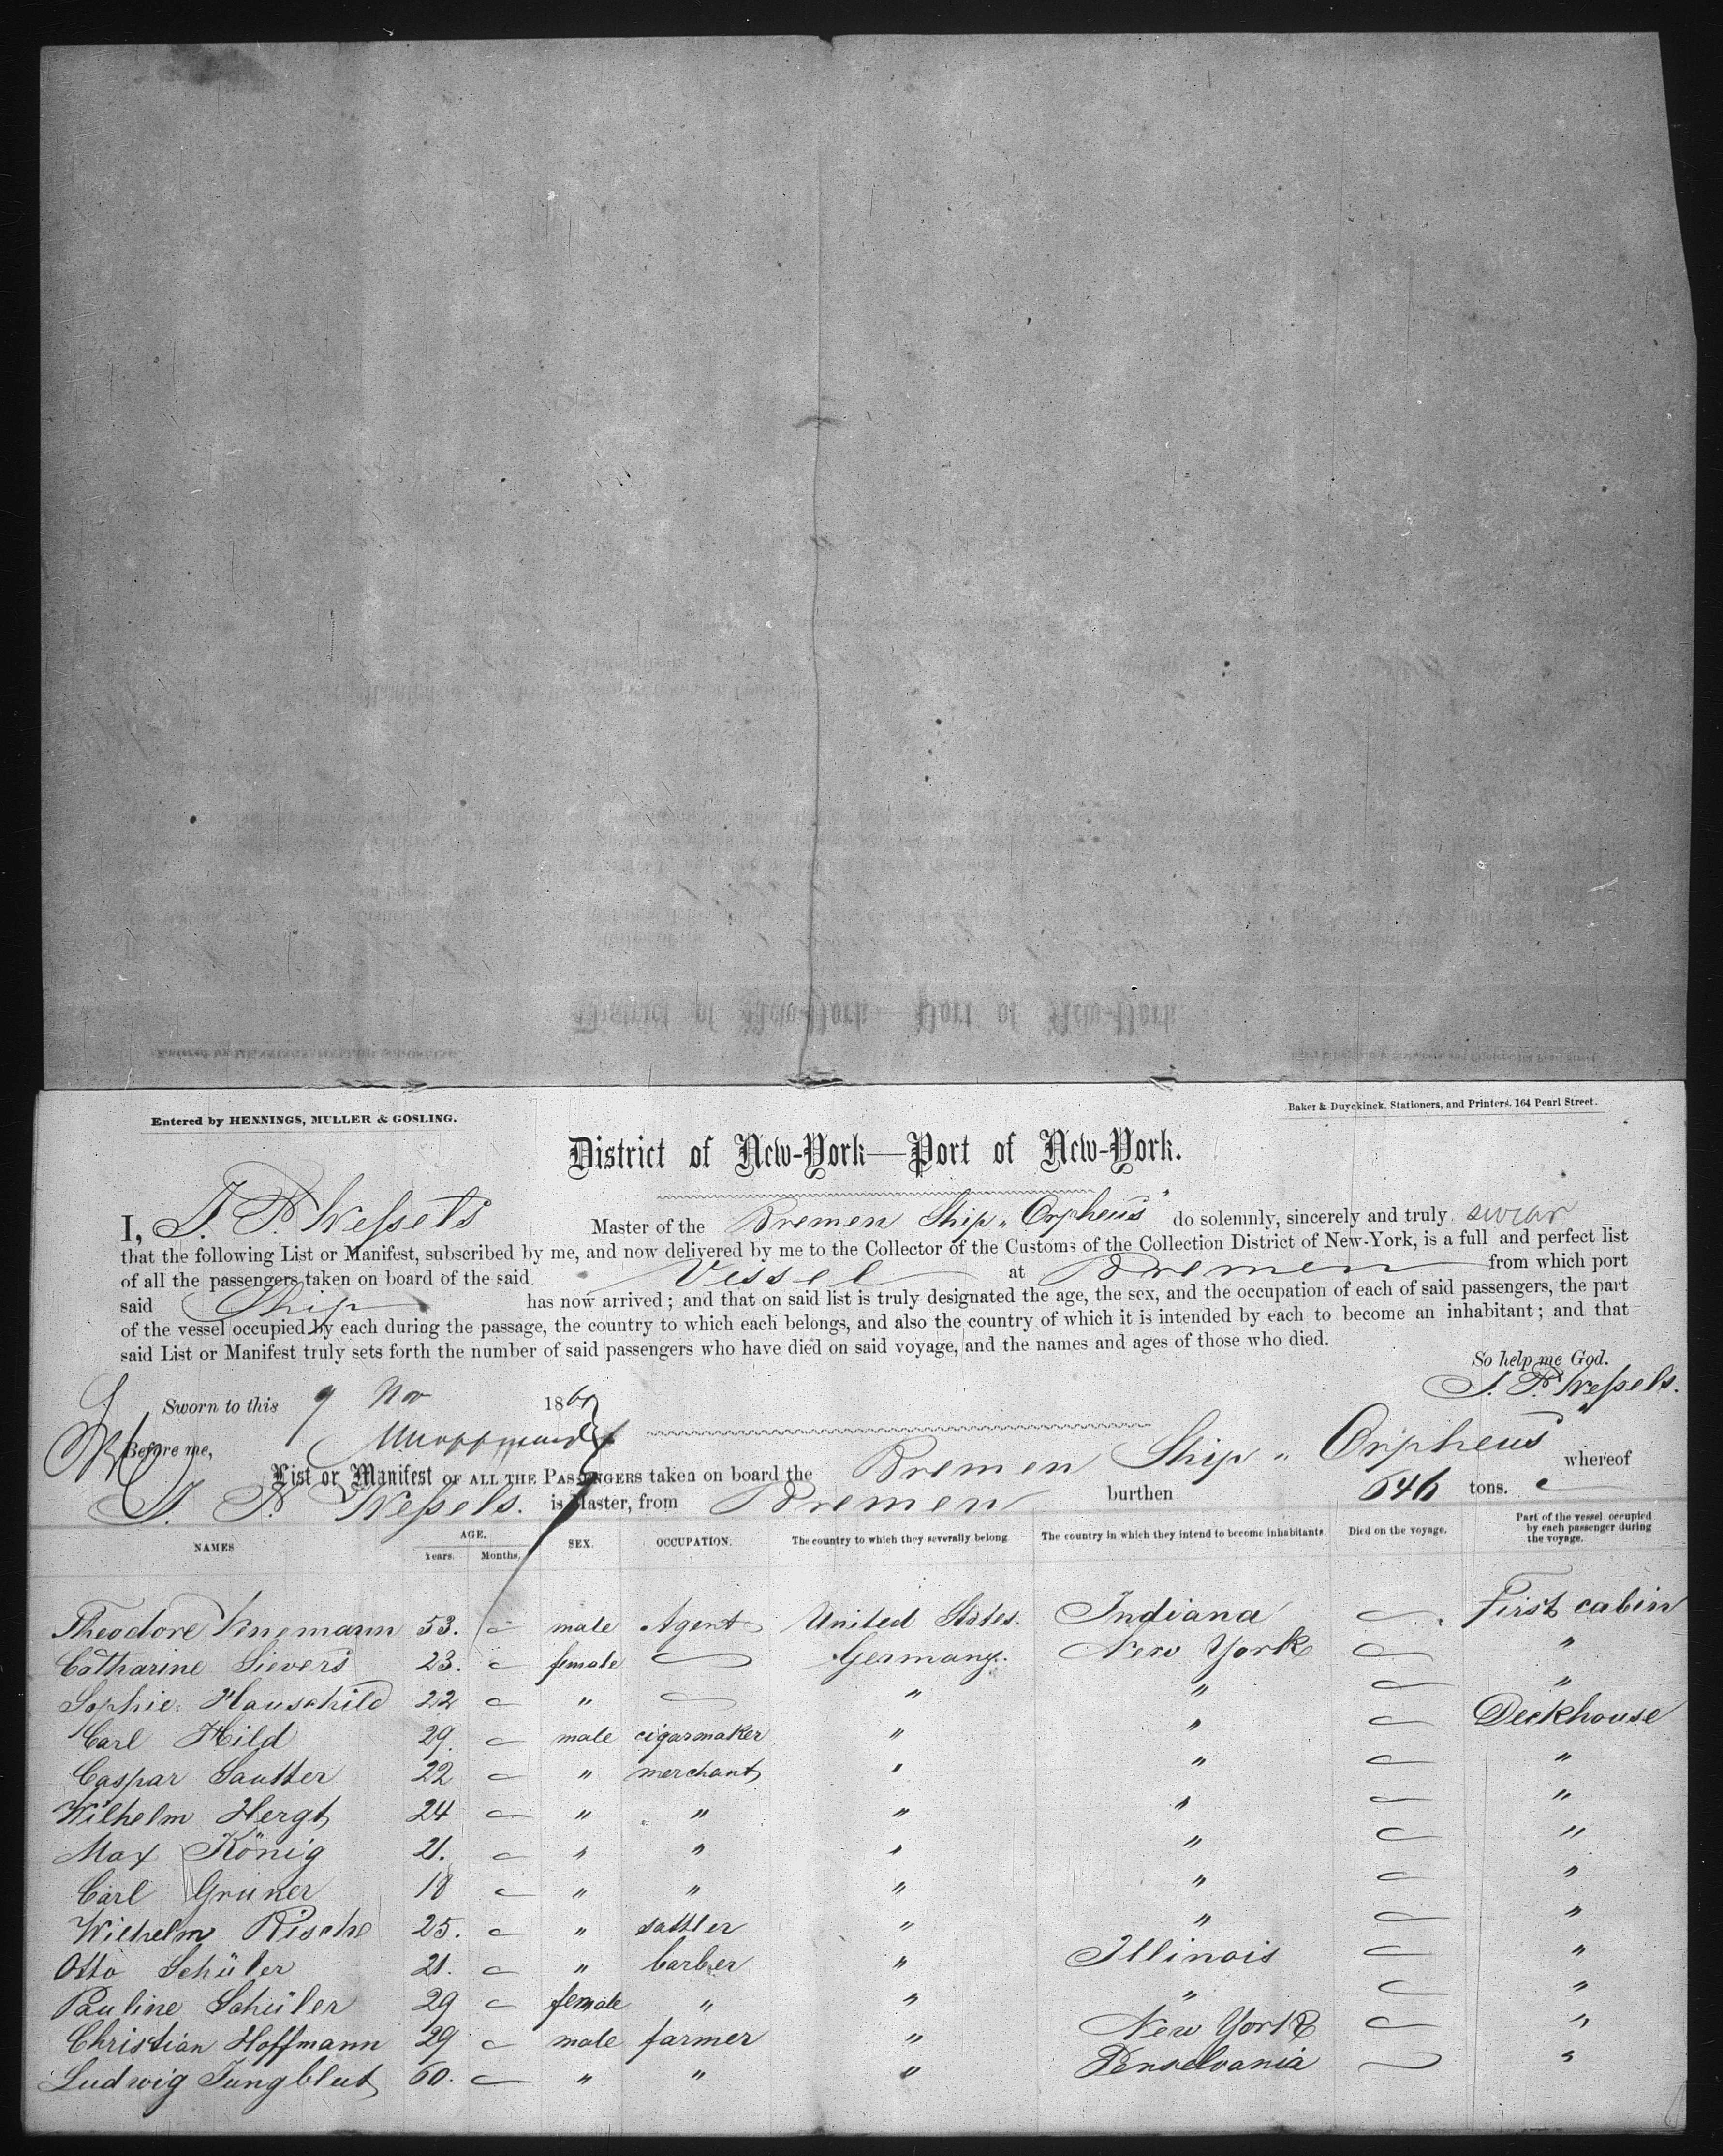 Entered by HENNINGS, MULLER & GOSLING.
Baker & Duyckinck, Stationers, and Printers, 164 Pearl Street.
District of New-York—Port of New-York.
I, Wessels Master of the Bremen Ship „Orpheus" do solemnly, sincerely and truly swear
that the following List or Manifest, subscribed by me, and now delivered by me to the Collector of the Customs of the Collection District of New-York, is a full and perfect list
of all the passengers taken on board of the said Vessel at Bremen from which port
said Ship has now arrived; and that on said list is truly designated the age, the sex, and the occupation of each of said passengers, the part
of the vessel occupied by each during the passage, the country to which each belongs, and also the country of which it is intended by each to become an inhabitant; and that
said List or Manifest truly sets forth the number of said passengers who have died on said voyage, and the names and ages of those who died.
So help me God.
Wessels.
Sworn to this 9 Nov 186
Before me,
List or Manifest OF ALL THE PASSENGERS taken on board the Bremen Ship „ Orpheus whereof
Wessels. is Master, from Bremen burthen 646 tons.
NAMES AGE. Years. Months. SEX. OCCUPATION. The country to which they severally belong. The country in which they intend to become inhabitants. Died on the voyage. Part of the vessel occupied by each passenger during the voyage.
Theodore 53. — male Agent United States. Indiana — First cabin
Catharine Sievers 23. — female — Germany. New York — "
Sophie Hauschild 22 — " — " " — "
Carl Hild 29. — male cigarmaker " " — Deckhouse
Caspar Sautter 22 — " merchant " " — "
Wilhelm Hergt 24 — " " " " — "
Max König 21. — " " " " — "
Carl Gruner 18 — " " " " — "
Wilhelm Rische 25. — " sattler " " — "
Otto Schüler 21. — " barber " Illinois — "
Pauline Schüler 29 — female " " " — "
Christian Hoffmann 29 — male farmer " New York — "
Ludwig Jungblut 60. — " " " Penselvania — "